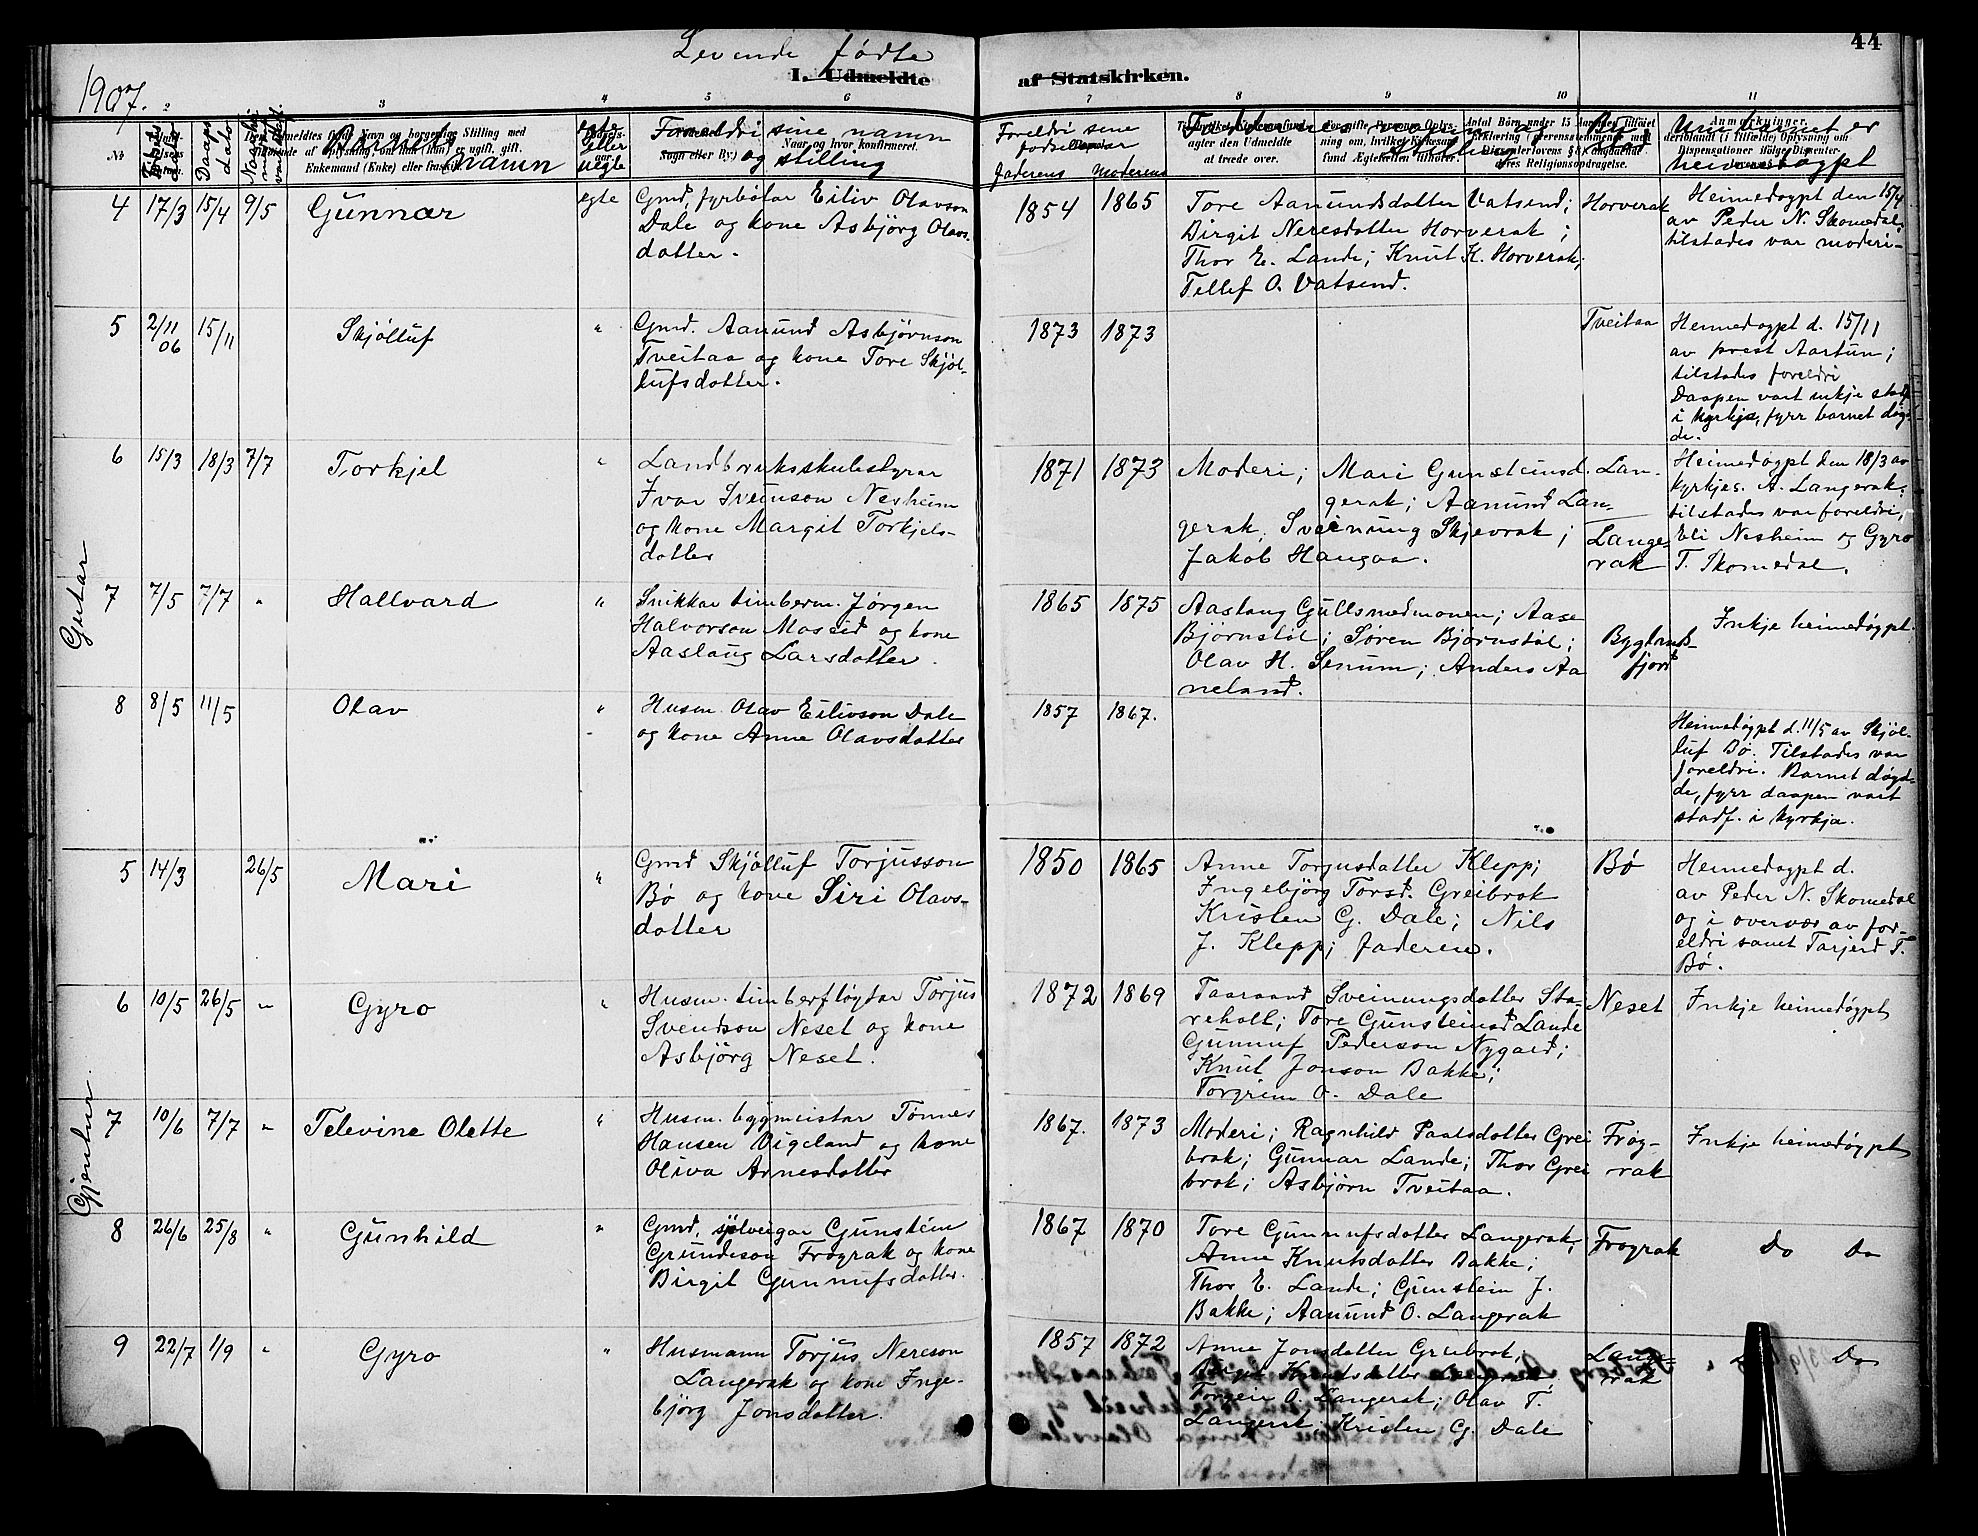 44
Levende fødte
I. Udmeldte af Statskirken.
1907.
3 4 5 6 7 8 9 10 11
№
Fødsels dato
Daaps dato
Barnets namn
egte eller uegte
Foreldri sine namn
og stilling
Foreldri sine
Faderens Moderens
Anmerkninger.
heimedøypt
Gutar
4 17/3 15/4 9/5 Gunnar egte
Gmd, fyrbøtar Eiliv Olavson
Dale og kone Asbjørg Olavs-
datter.
1854 1865
Tore Aanundsdatter Vatsend;
Birgit Neresdatter Horverak;
Thor E. Lande; Knut K. Horverak;
Tellef O. Vatsend.
Horverak
Heimedøypt den 15/4
av Peder N. Skomedal;
tilstades var moderi-
5 2/11 06 15/11 Skjølluf "
Gmd. Aanund Asbjørnson
Tveitaa og kone Tore Skjøl-
lufsdatter.
1873 1873
Tveitaa
Heimedøypt d. 15/11
av prest Aartun;
tilstades foreldri
Daapen vart inkje stadf.
i kyrkja, fyrr barnet døy-
de.
6 15/3 18/3 7/7 Torkjel "
Landbruksskulestyrar
Ivar Sveinson Nesheim
og kone Margit Torkjels-
datter
1871 1873
Moderi; Mari Gunsteinsd. Lan-
gerak; Aanund Lan-
gerak, Sveinung Skjevrak;
Jakob Haugaa.
Lange-
rak
Heimedøypt den 18/3 av
kyrkjes. A. Langerak;
tilstades var foreldri,
Eli Nesheim og Gyro
T. Skomedal.
7 7/5 7/7 " Hallvard "
Snikkar timberm. Jørgen
Halvorson Mosseid og kone
Aaslaug Larsdatter.
1865 1875
Aaslaug Gullsmedmonen; Aase
Bjørnstøl; Søren Bjørnstøl;
Olav H. Senum; Anders Aa
neland.
Byglands-
fjord
Inkje heimedøypt.
8 8/5 11/5 Olav "
Husm. Olav Eilivson Dale
og kone Anne Olavsdatter
1857 1867.
Heimedøypt d. 11/5 av Skjøl-
luf Bø. Tilstades var
foreldri. Barnet døyd-
de, fyrr daapen vart
stadf. i kyrkja.
Gjentur.
5 14/3 26/5 Mari "
Gmd Skjølluf Torjusson
Bø og kone Siri Olavs-
datter
1850 1865
Anne Torgusdatter Klepp;
Ingebjørg Torsd. Greibrok
Kristen G. Dale; Nils
J. Klepp; faderen.
Bø
Heimedøypt d.
av Peder N. Skomedal
og i overvær av for-
eldri samt Tarjerd T.
Bø.
6 10/5 26/5 " Gyro "
Husm. timberfløytar Torjus
Svendson Neset og kone
Asbjørg Neset.
1872 1869
Taaraand Sveinungsdatter Sta-
reholt; Tore Gunsteinsd Lande
Gunnuf Pederson Nygard;
Knut Jonson Bakke;
Torgrim O. Dale
Neset
Inkje heimedøypt
7 10/6 7/7 " Televine Olette "
Husm. bygmeistar Tønnes
Hansen Vigeland og kone
Oliva Arnesdatter
1867. 1873
Moderi; Ragnhild Paalsdatter Grei
brok; Gunnar Lande; Thor Grei
brok; Asbjørn Tveitaa.
Frøy-
rak
Inkje heimedøypt
8 26/6 25/8 " Gunhild "
Gmd, sylvergar Gunstein
Grundeson Frøyrak og kone
Birgit Gunnufsdatter.
1867 1870
Tore Gunnufsdatter Langerak;
Anne Knutsdatter Bakke;
Thor E. Lande; Gunstein J.
Bakke; Aanund O. Langerak
Frøyrak
Do Do
9 22/7 1/9 " Gyro "
Husmann Torjus Nereson
Langerak og kone Inge-
bjørg Jonsdatter.
1857 1872
Anne Jonsdatter Greibrok;
Birgit Knutsdatter Langerak
Torgeir O. Langerak; Olav T.
Langerak; Kristen G. Dale
Lange-
rak
Do